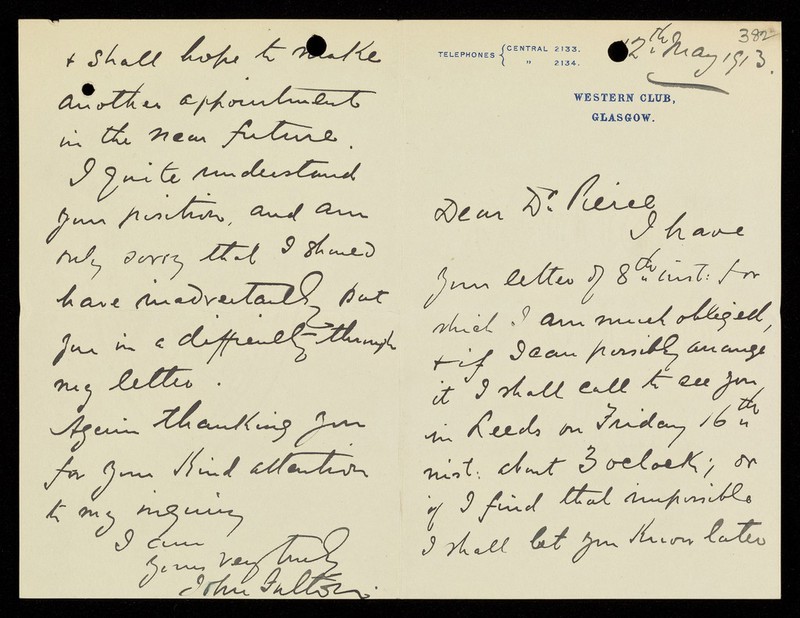 382
TELEPHONES { CENTRAL 2133.
" 2134.
12th May 1913.
WESTERN CLUB,
GLASGOW.
Dear Dr. Pierce
I have
your letter of 8th inst: for
which I am much obliged,
+ if I can possibly arrange
it I shall call to see you
in Leeds on Friday 16th
inst: about 3 oclock; or
if I find that impossible
I shall let you know later
+ shall hope to make
another appointment
in the near future.
I quite understand
your position, and am
only sorry that I should
have inadvertently put
you in a difficulty through
my letter.
Again thanking you
for your kind attention
to my inquiry
I am
yours very truly
John Fulton